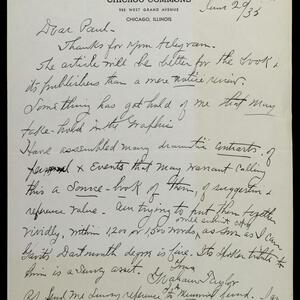 CHICAGO COMMONS
955 WEST GRAND AVENUE
CHICAGO, ILLINOIS
June 29/35
Dear Paul -
Thanks for yr telegram.
The article will be better for the book &
its publishers than a mere notice review.
Something has got hold of me that may
take-hold in the Graphic
Have assembled many dramatic contrasts of
& Events that may warrant calling
this a Source-book of them, of suggestion &
reference value. Am trying to put them together
vividly, within 1200 or 1500 words, as soon as I can
Dartmouth degree is fine. Its tribute to
him is a asset.
Yours
Graham Taylor
P.S. Send me reference to Memorial fund.